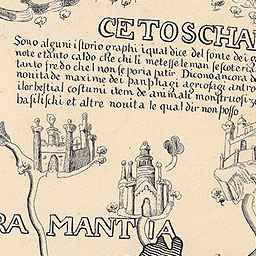 CETOSCHAM
Sono alguni istorio graphi iqual dice del fonte dei g
note e tanto caldo che chi li metesse le man se scoteria
tanto fredo che l non se poria patir Dicono ancora d
nouita de maxime dei panphagi agriofagi antro
ilor bestial costumi item de animali monstruosi
basilischi et altre nouita le qual dir non posso
RA MANTIA